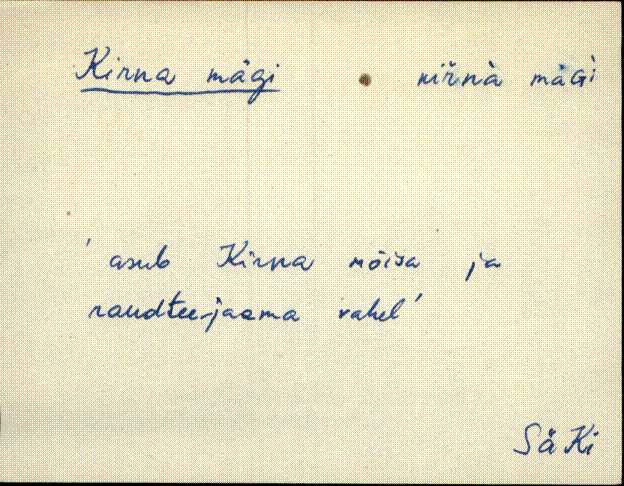 Kirna mägi kir̆nà mäGì
'asub Kirna mõisa ja
raudtee-jaama vahel'
SäKi